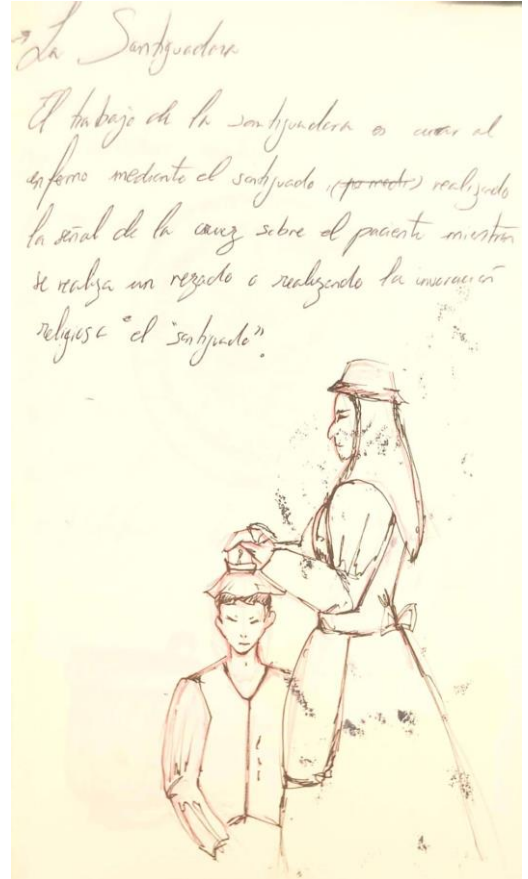 La Santiguadora
El trabajo de la santiguadora es curar al
enfermo mediante el santiguado, (por medi) realizando
la señal de la cruz sobre el paciente mientras
se realiza un rezado o realizando la invocación
religiosa "el "santiguado".